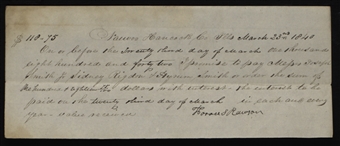 $ 110-75 Nauvoo Hancock Co Ills March 23rd 1840
On or before the twenty third day of March one thousand
eight hundred and forty two I promise to pay Mess Joseph
Smith Jr Sidney Rigdon & Hyrum Smith or order the sum of
dollars with interest the interest to be
paid on the twenty third day of March in each and every
year value received
Horace Rawson